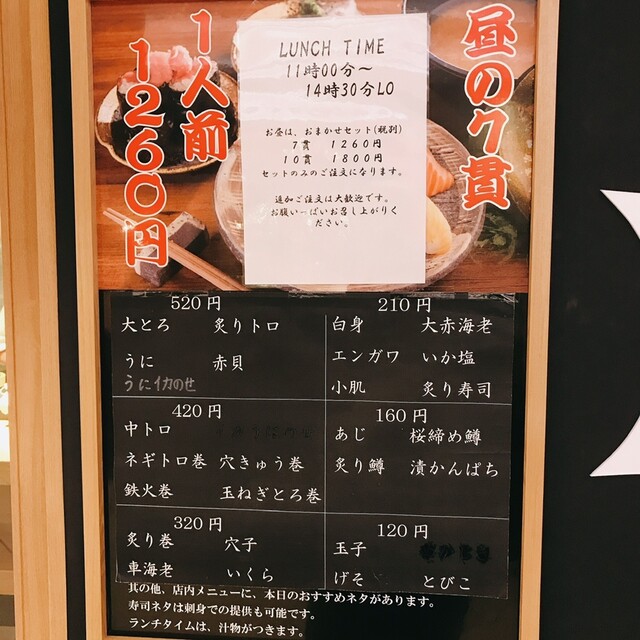 昼の7貫
1人前
1260円
LUNCH TIME
11時00分～
14時30分LO
お昼は、おまかせセット(税別)
7貫 1260円
10貫 1800円
セットのみのご注文になります。
追加ご注文は大歓迎です。
お腹いっぱいお召し上がりく
ださい。
520円
大とろ 炙りトロ
うに 赤貝
うにイカのせ
210円
白身 大赤海老
エンガワ いか塩
小肌 炙り寿司
420円
中トロ
ネギトロ巻 穴きゅう巻
鉄火巻 玉ねぎとろ巻
160円
あじ 桜締め鱒
炙り鱒 漬かんぱち
320円
炙り巻 穴子
車海老 いくら
120円
玉子
げそ とびこ
其の他、店内メニューに、本日のおすすめネタがあります。
寿司ネタは刺身での提供も可能です。
ランチタイムは、汁物がつきます。